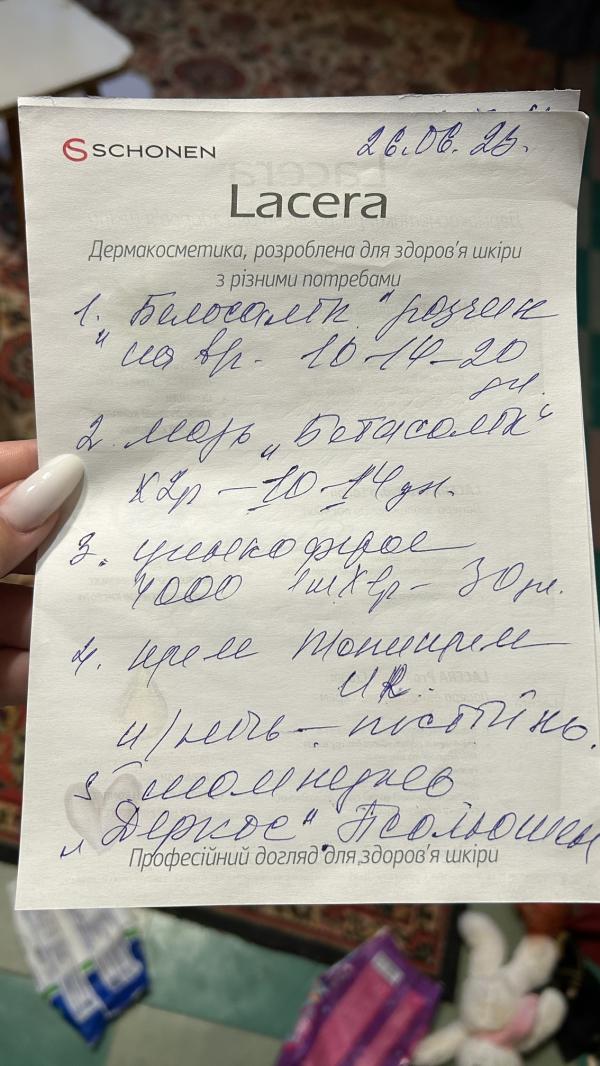 SCHONEN
26.06.25.
Lacera
Дермакосметика, розроблена для здоров'я шкіри
з різними потребами
1. Белосалік " розчин
" на вр. 10-14-20
дн.
2. мазь „Бетасалік"
х2р – 10-14 дн.
3. 
4000 1т х 1р – 30 дн.
4. крем Топикрем
UR.
н/ніч – постійно.
5 шампунев
„Деркос". Псолюшен
Професійний догляд для здоров'я шкіри